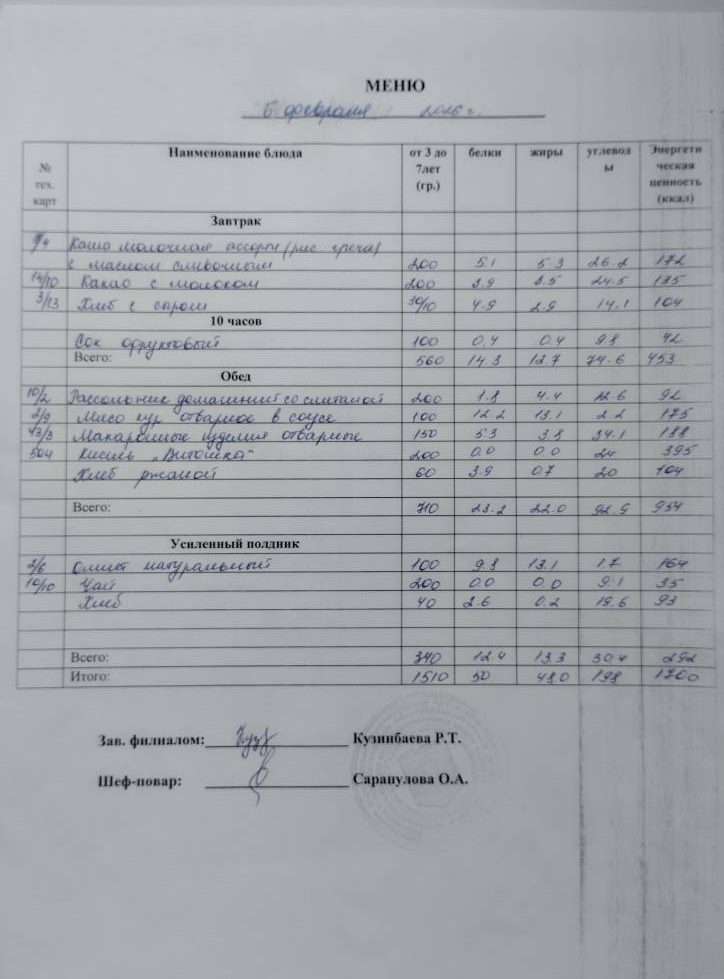 МЕНЮ
5 февраля 2026 г.
№ тех. карт Наименование блюда от 3 до 7лет (гр.) белки жиры углеводы Энергетическая ценность (ккал)
Завтрак
9/4 Каша молочная ассорти (рис, греча)
с маслом сливочным 200 5.1 5.3 26.2 172
14/10 Какао с молоком 200 3.9 3.5 24.5 135
3/13 Хлеб с сыром 30/10 4.9 2.9 14.1 104
10 часов
Сок фруктовый 100 0.4 0.4 9.8 42
Всего: 560 14.3 12.7 74.6 453
Обед
10/2 Рассольник домашний со сметаной 200 1.8 4.4 12.6 92
2/9 Мясо кур отварное в соусе 100 12.2 13.1 2.2 175
43/3 Макаронные изделия отварные 150 5.3 3.8 34.1 188
504 Кисель "Витошка" 200 0.0 0.0 24 395
Хлеб ржаной 60 3.9 0.7 20 104
Всего: 710 23.2 22.0 92.9 954
Усиленный полдник
2/6 Омлет натуральный 100 9.8 13.1 1.7 164
10/10 Чай 200 0.0 0.0 9.1 35
Хлеб 40 2.6 0.2 19.6 93
Всего: 340 12.4 13.3 30.4 292
Итого: 1510 50 48.0 198 1700
Зав. филиалом: Кузинбаева Р.Т.
Шеф-повар: Сарапулова О.А.